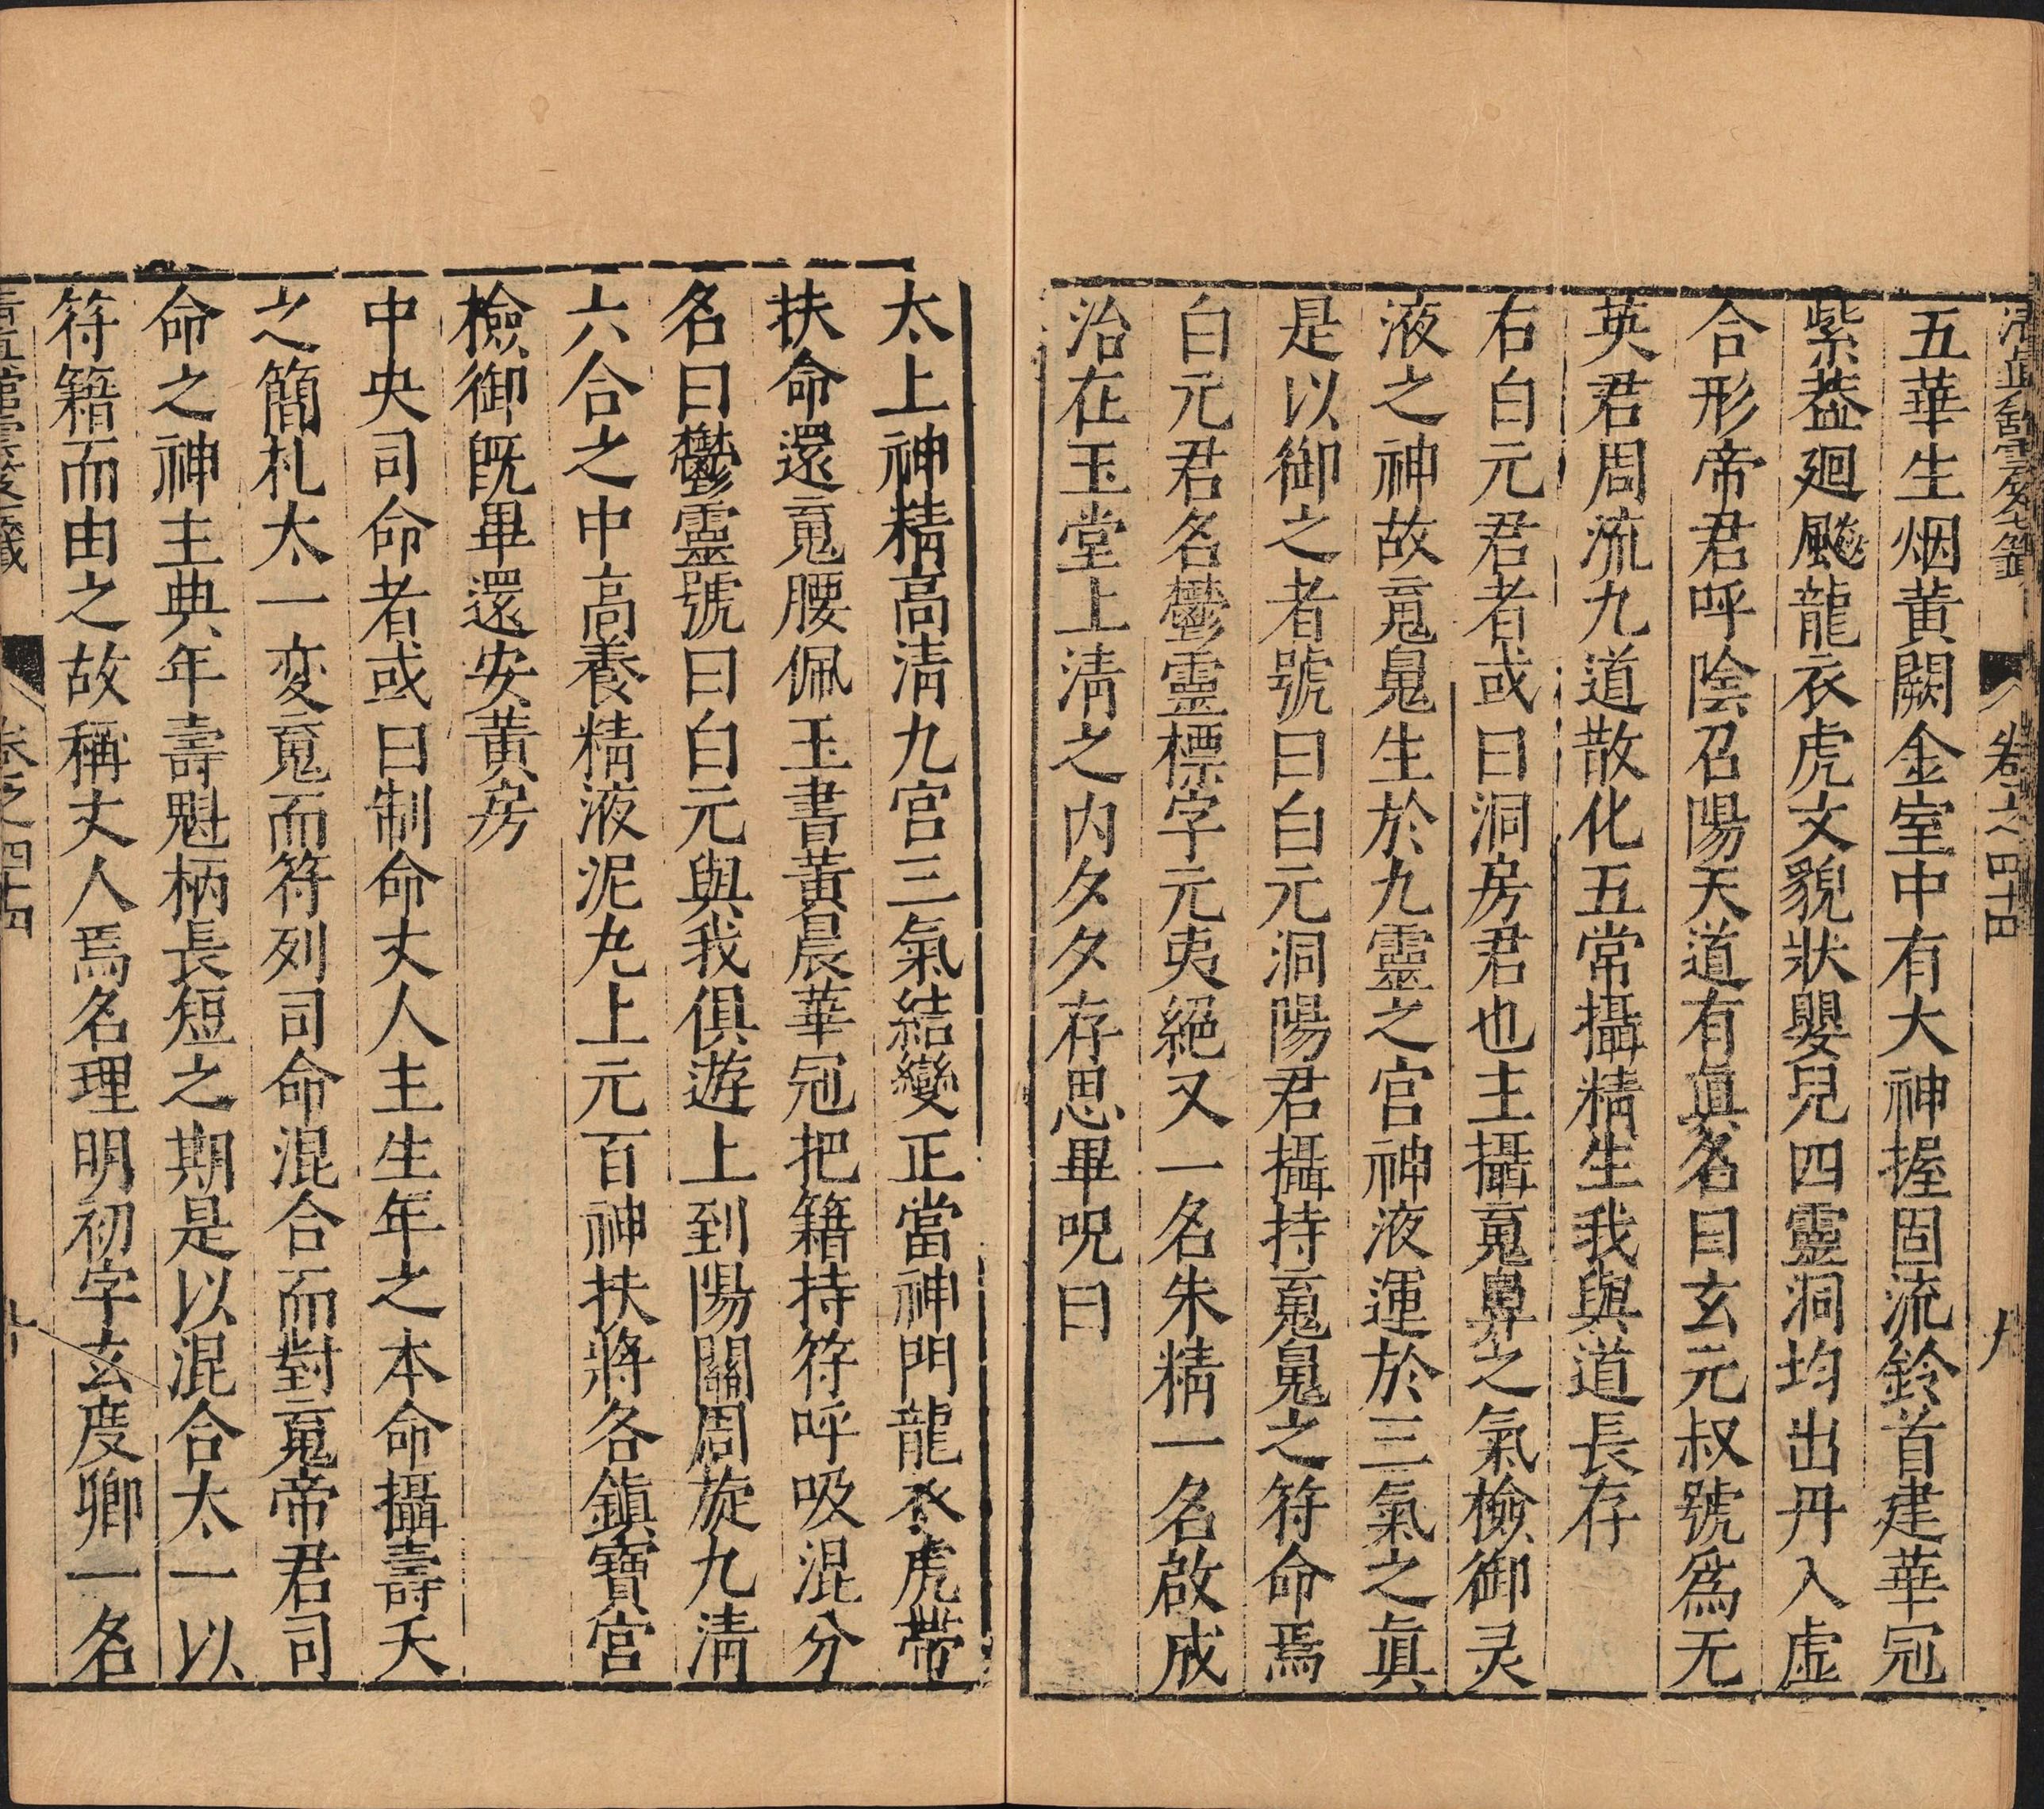 卷之四十四 九
五華生烟黄闕金室中有大神握固流鈴首建華冠
紫葢廻飈龍衣虎文貌狀嬰兒四靈洞均出丹入虛
合形帝君呼陰召陽天道有眞名曰玄元叔號爲无
英君周流九道散化五常攝精生我與道長存
右白元君者或曰洞房君也主攝䰟鼻之氣檢御灵
液之神故䰟䰟生於九靈之宫神液運於三氣之眞
是以御之者號曰白元洞陽君攝持䰟䰟之符命焉
白元君名鬱靈標字元夷絕又一名朱精一名啟成
治在玉堂上清之内夕夕存思畢呪曰
太上神精高清九宫三氣結變正當神門龍衣虎帶
扶命還䰟腰佩玉書黄晨華冠把籍持符呼吸混分
名曰鬱靈號曰白元與我俱遊上到陽關周旋九清
六合之中高養精液泥丸上元百神扶將各鎮寶宫
檢御既畢還安黄房
中央司命者或曰制命丈人主生年之本命攝壽夭
之簡札太一变䰟而符列司命混合而對䰟帝君司
命之神主典年壽魁柄長短之期是以混合太一以
符籍而由之故稱丈人焉名理明初字玄度卿一名
卷之四十四